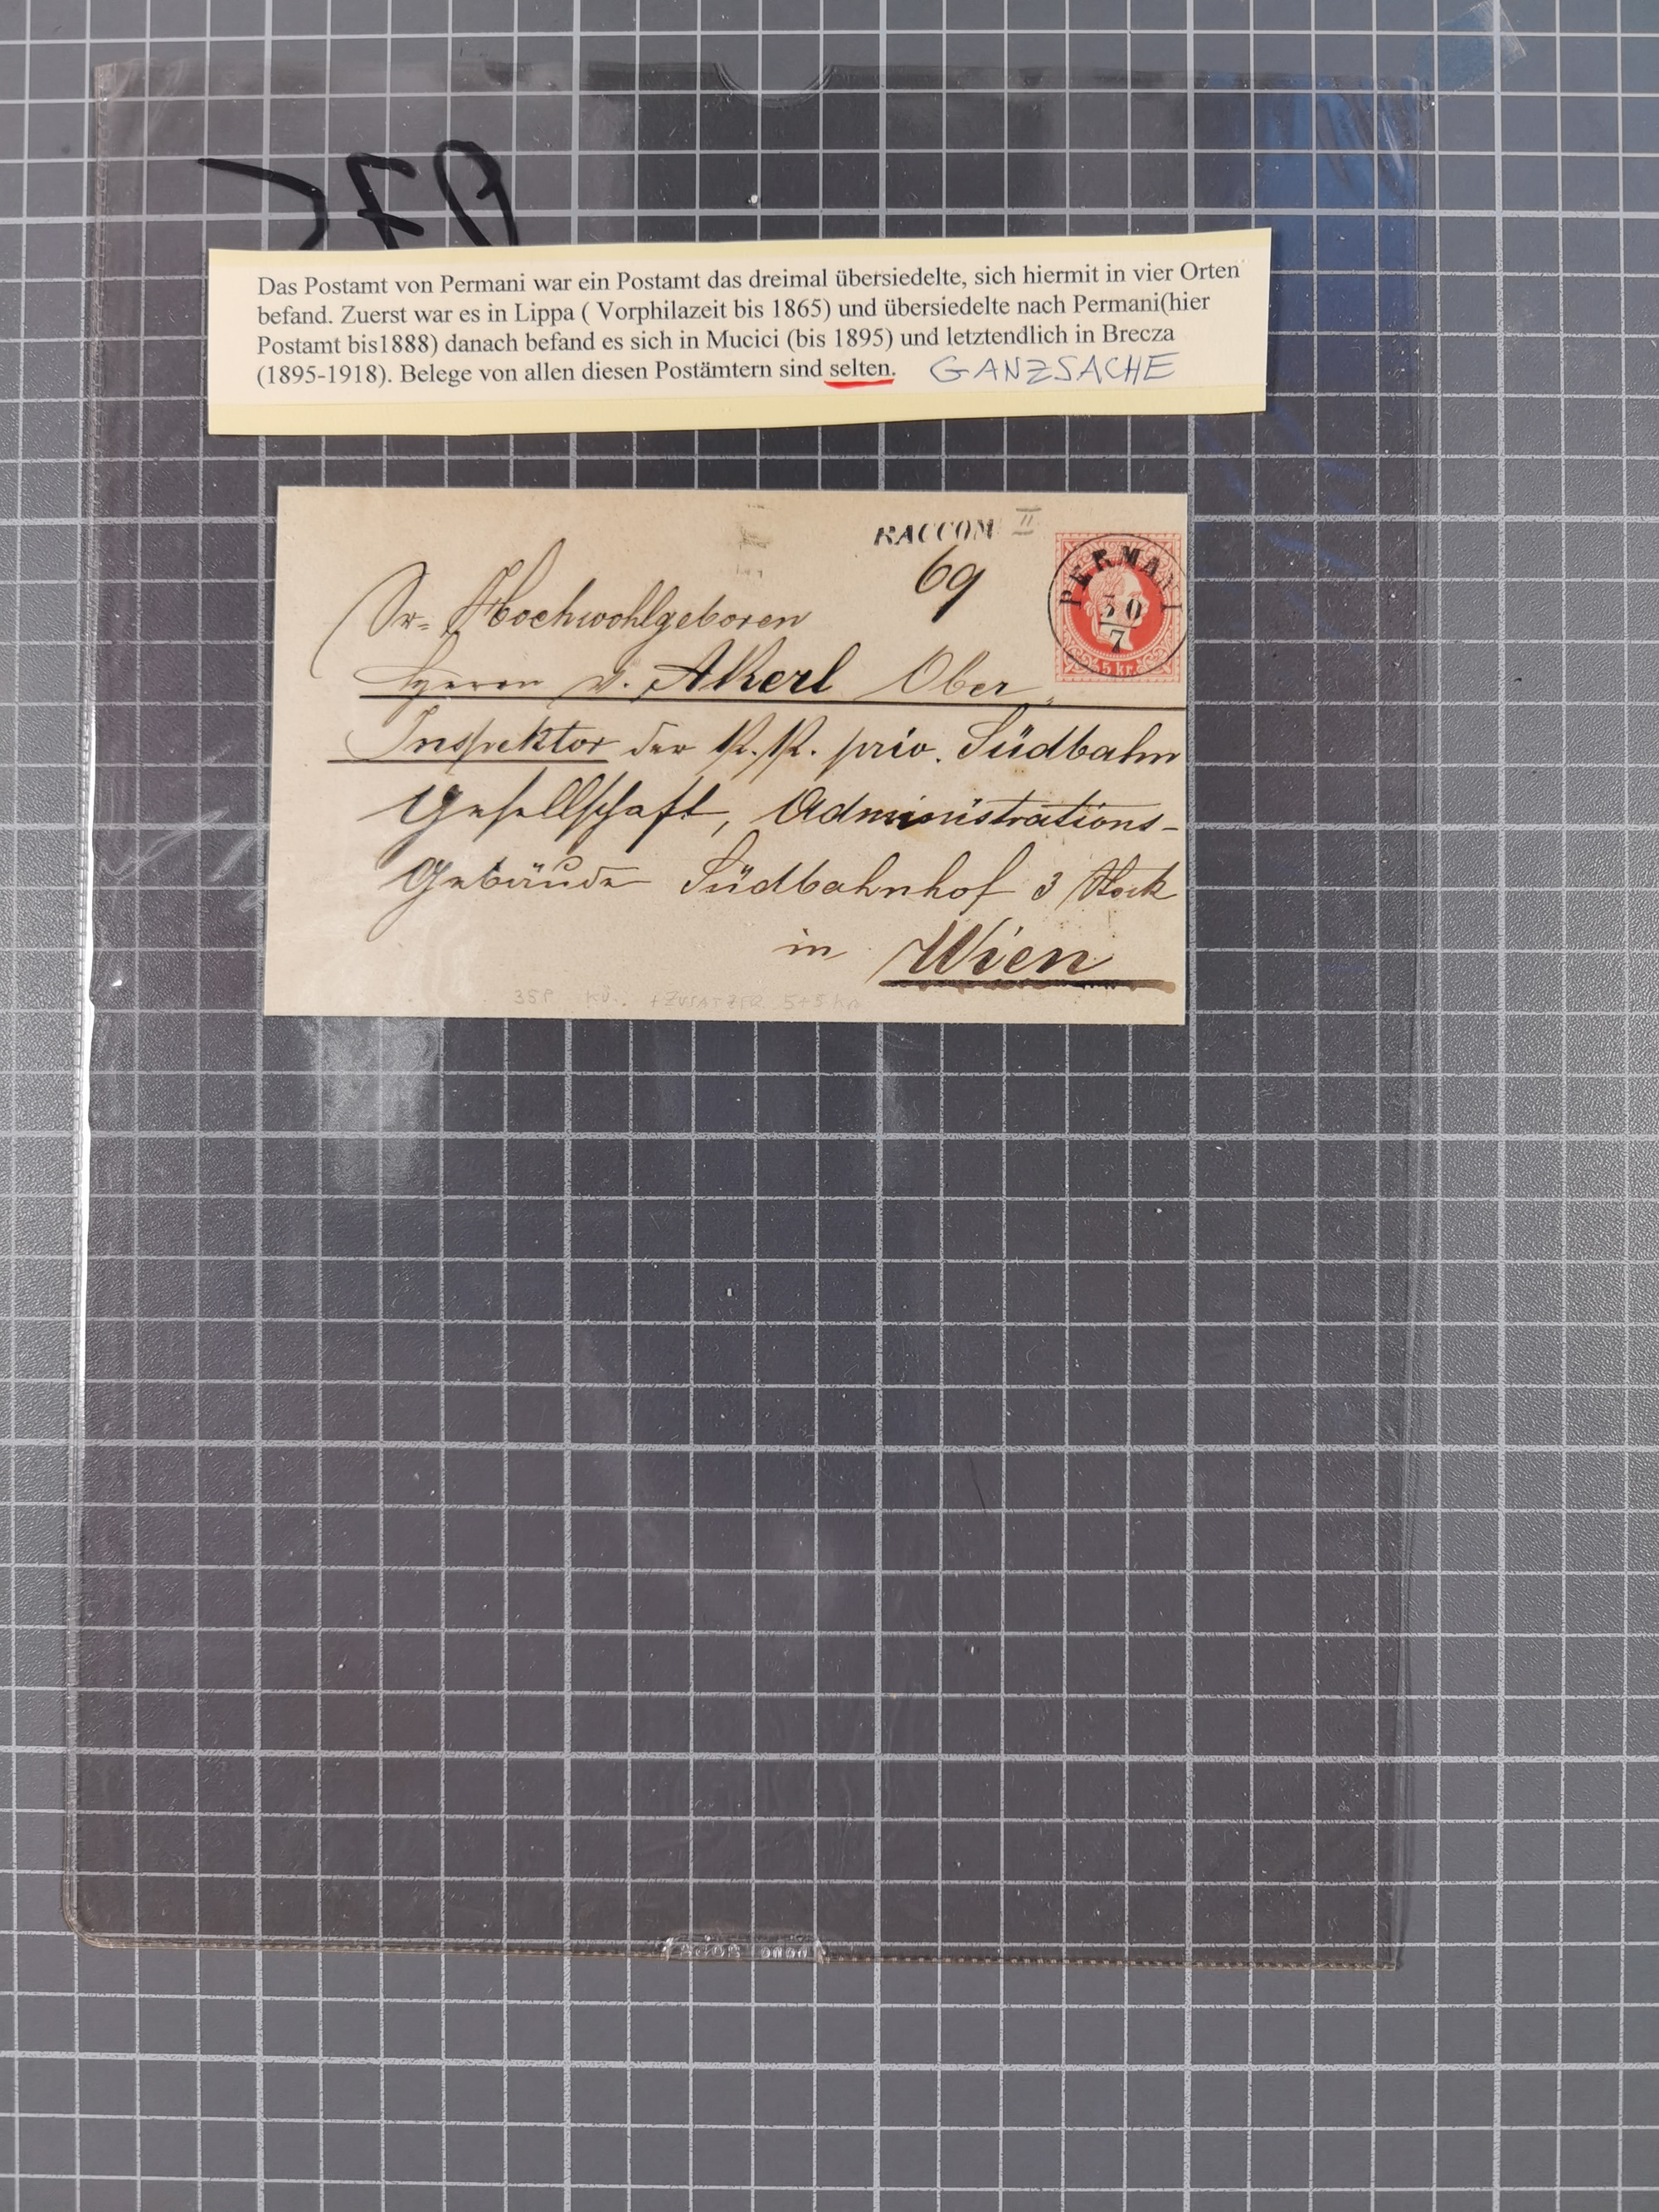 Das Postamt von Permani war ein Postamt das dreimal übersiedelte, sich hiermit in vier Orten
befand. Zuerst war es in Lippa ( Vorphilazeit bis 1865) und übersiedelte nach Permani(hier
Postamt bis1888) danach befand es sich in Mucici (bis 1895) und letztendlich in Brecza
(1895-1918). Belege von allen diesen Postämtern sind selten. GANZSACHE
RACCOM II
69
PERMANI
30
7
5 kr.
Sr. Hochwohlgeboren
Herrn v. Akerl Ober
Inspektor der K. K. priv. Südbahn
Gesellschaft, Administrations-
Gebäude Südbahnhof 3 Stock
in Wien
+ZUSATZFR 5+5 kr